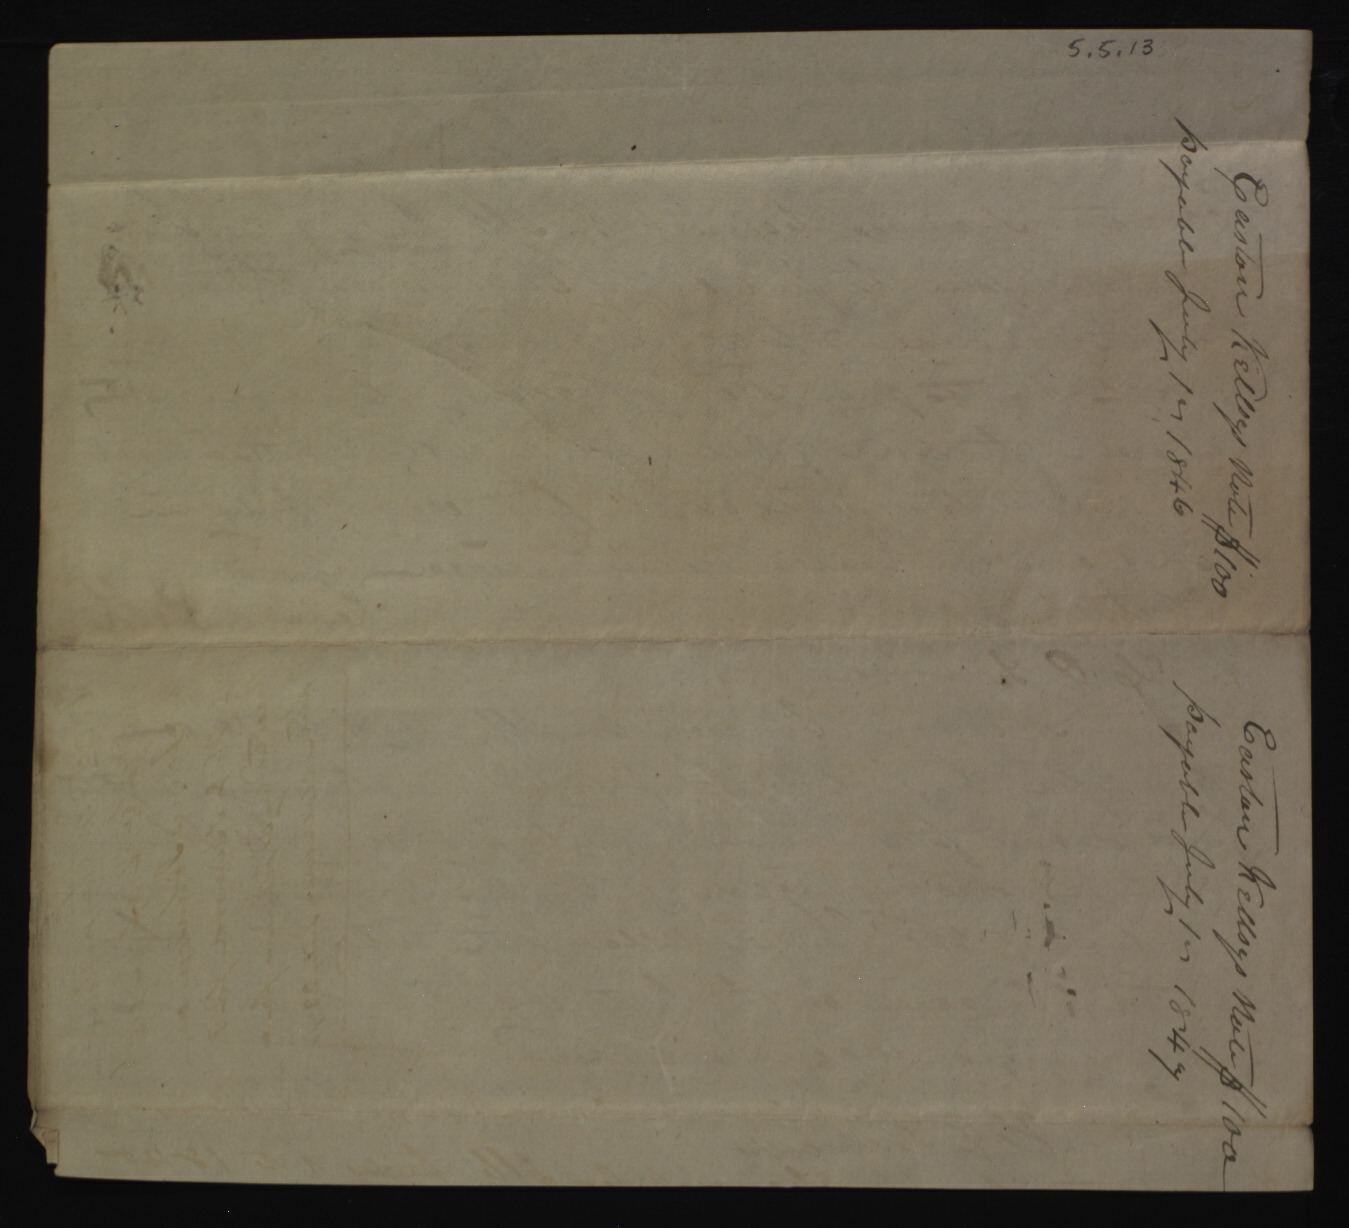 5.5.13
Easton Kelseys Note $100
payable July 1st 1846
Easton Kelseys Note $100
payable July 1st 1849